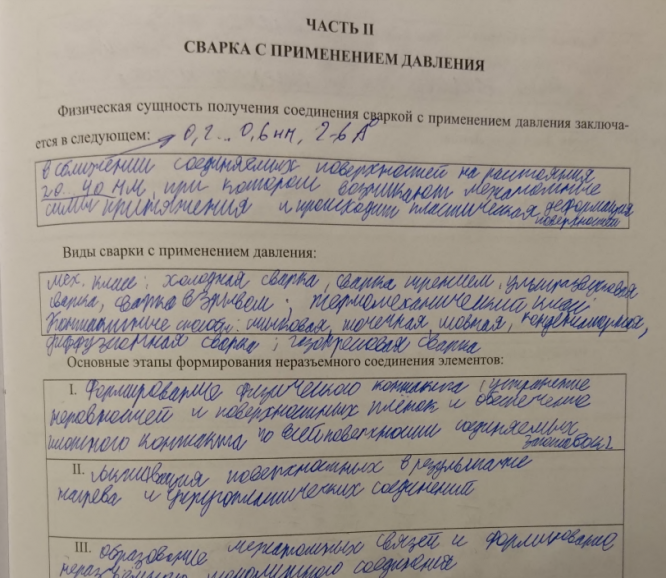 ЧАСТЬ II
СВАРКА С ПРИМЕНЕНИЕМ ДАВЛЕНИЯ
Физическая сущность получения соединения сваркой с применением давления заключа-
ется в следующем: 0,2... 0,6 нм, 2-6 А°
в сближении соединяемых поверхностей на расстояния
20..40 нм, при котором возникают межатомные
силы притяжения и происходит пластическая деформация
поверхностей
Виды сварки с применением давления:
мех. класс: холодная сварка, сварка трением, ультразвуковая
сварка, сварка взрывом. термомеханический класс:
Контактные способы: стыковая, точечная, шовная, конденсаторная,
диффузионная сварка; газопрессовая сварка
Основные этапы формирования неразъемного соединения элементов:
I. Формирование физического контакта, устранение
неровностей и поверхностных плёнок и обеспечение
плотного контакта по всей поверхности соединяемых
заготовок
II. активация поверхностных в результате
нагрева и упругопластических соединений
III. образование межатомных связей и формирование
неразъемного монолитного соединения